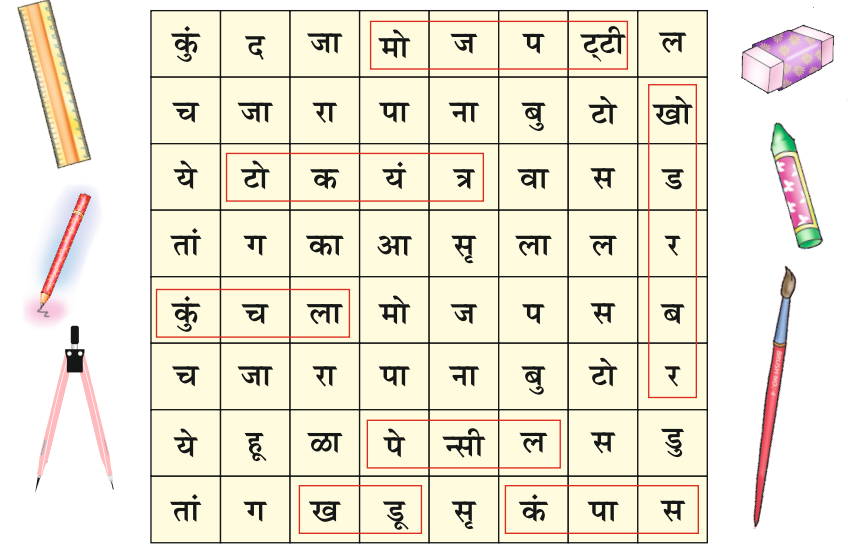 कुं द जा मो ज प ट्टी ल
च जा रा पा ना बु टो खो
ये टो क यं त्र वा स ड
तां ग का आ सृ ला ल र
कुं च ला मो ज प स ब
च जा रा पा ना बु टो र
ये हू ळा पे न्सी ल स डु
तां ग ख डू सृ कं पा स